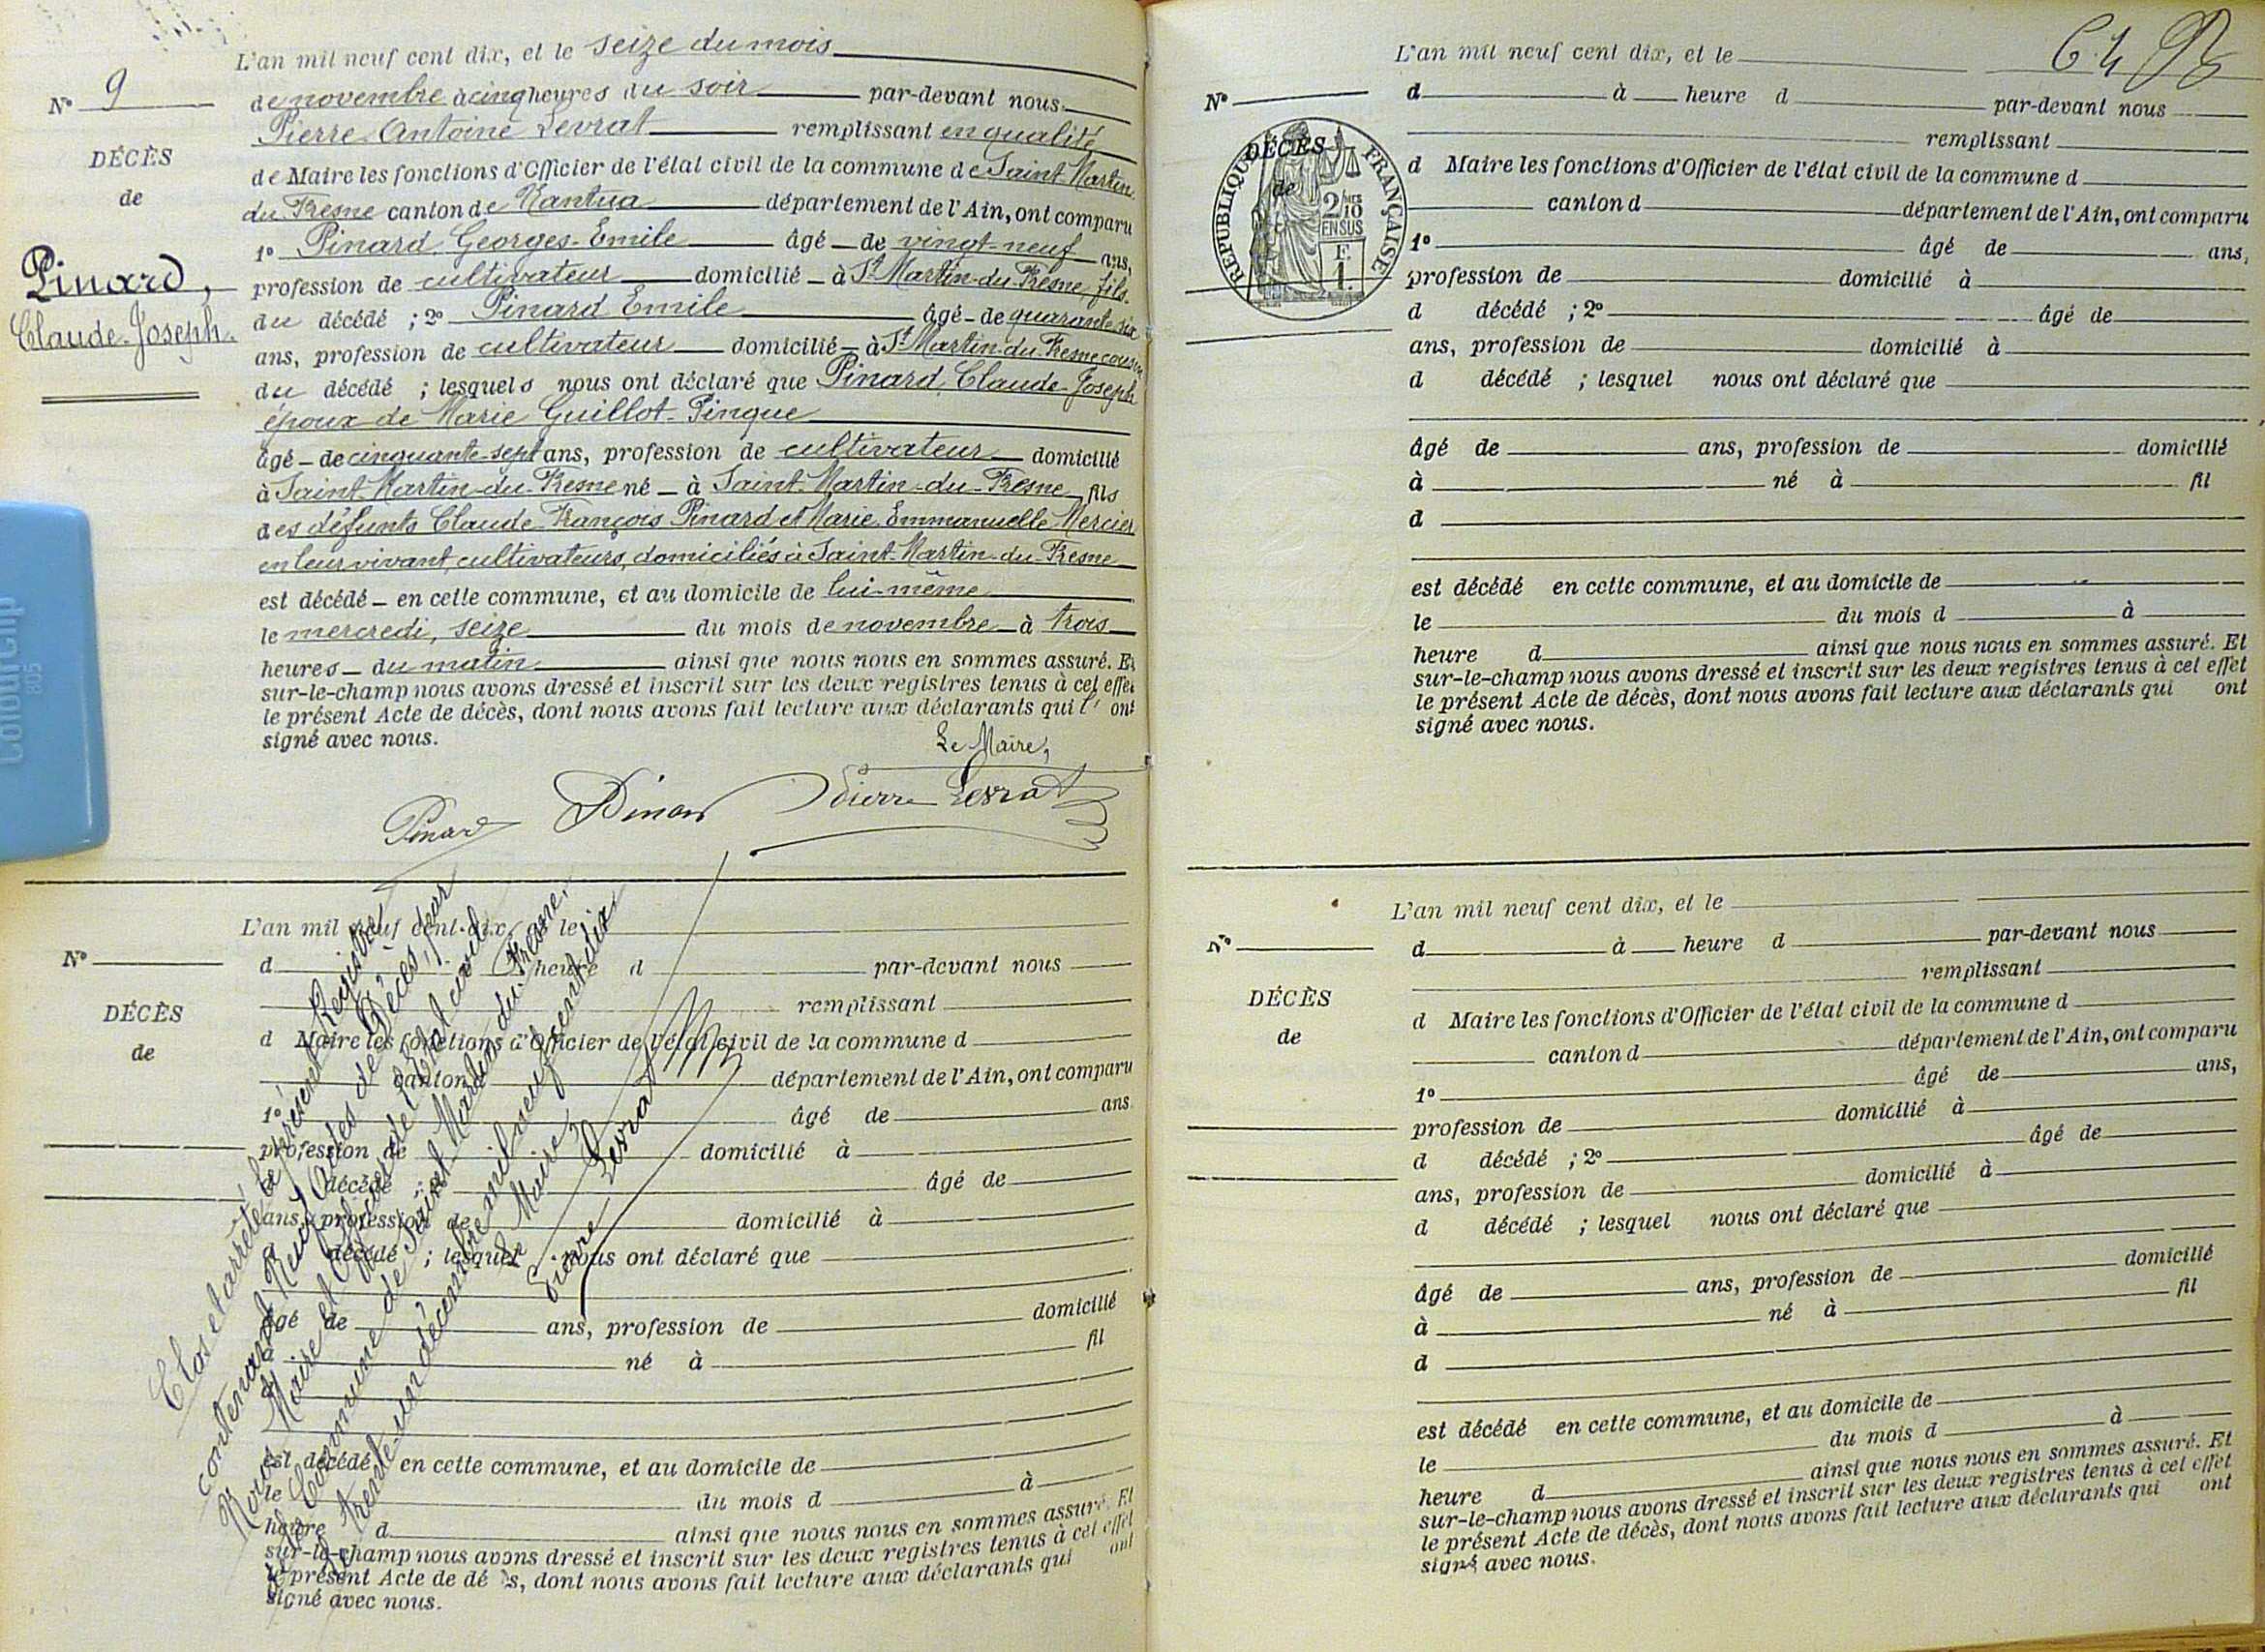 L'an mil neuf cent dix, et le seize du mois
N° 9
de novembre à cinq heures du soir par-devant nous
Pierre Antoine Levrat remplissant en qualité
DÉCÈS
de
de Maire les fonctions d'Officier de l'état civil de la commune de Saint-Martin
du-Fresne canton de Nantua département de l'Ain, ont comparu
1° Pinard, Georges-Emile âgé de vingt-neuf ans,
Pinard,
Claude-Joseph.
profession de cultivateur domicilié à St Martin-du-Fresne, fils
du décédé ; 2° Pinard Emile âgé de quarante-six
ans, profession de cultivateur domicilié à St Martin-du-Fresne cousin
du décédé ; lesquels nous ont déclaré que Pinard, Claude-Joseph
époux de Marie Guillot-Pingue
âgé de cinquante-sept ans, profession de cultivateur domicilié
à Saint-Martin-du-Fresne né à Saint-Martin-du-Fresne fils
des défunts Claude-François Pinard et Marie-Emmanuelle Mercier
en leur vivant, cultivateurs, domiciliés à Saint-Martin-du-Fresne
est décédé en cette commune, et au domicile de lui-même
le mercredi, seize du mois de novembre à trois
heures du matin ainsi que nous nous en sommes assuré. Et
sur-le-champ nous avons dressé et inscrit sur les deux registres tenus à cet effet
le présent Acte de décès, dont nous avons fait lecture aux déclarants qui l'ont
signé avec nous.
Le Maire,
Pinard Pinard Pierre Levrat
L'an mil neuf cent dix, et le
N°
d heure d par-devant nous
remplissant
DÉCÈS
de
d Maire les fonctions d'Officier de l'état civil de la commune d
canton d département de l'Ain, ont comparu
1° âgé de ans
profession de domicilié à
d décédé ; 2° âgé de
ans, profession de domicilié à
d décédé ; lesquel nous ont déclaré que
âgé de ans, profession de domicilié
à né à fil
d
est décédé en cette commune, et au domicile de
le du mois d à
heure d ainsi que nous nous en sommes assuré. Et
sur-le-champ nous avons dressé et inscrit sur les deux registres tenus à cet effet
le présent Acte de décès, dont nous avons fait lecture aux déclarants qui ont
signé avec nous.
Clos et arrêté le présent Registre
contenant Neuf Actes de Décès, par
Nous Maire et Officier de l'état civil
de la Commune de Saint-Martin-du-Fresne,
le trente-un décembre mil neuf cent dix.
Le Maire,
Pierre Levrat
L'an mil neuf cent dix, et le
N°
d à heure d par-devant nous
remplissant
DÉCÈS
de
RÉPUBLIQUE FRANÇAISE
2/10
EN SUS
F.
1.
d Maire les fonctions d'Officier de l'état civil de la commune d
canton d département de l'Ain, ont comparu
1° âgé de ans,
profession de domicilié à
d décédé ; 2° âgé de
ans, profession de domicilié à
d décédé ; lesquel nous ont déclaré que
âgé de ans, profession de domicilié
à né à fil
d
est décédé en cette commune, et au domicile de
le du mois d à
heure d ainsi que nous nous en sommes assuré. Et
sur-le-champ nous avons dressé et inscrit sur les deux registres tenus à cet effet
le présent Acte de décès, dont nous avons fait lecture aux déclarants qui ont
signé avec nous.
L'an mil neuf cent dix, et le
N°
d à heure d par-devant nous
remplissant
DÉCÈS
de
d Maire les fonctions d'Officier de l'état civil de la commune d
canton d département de l'Ain, ont comparu
1° âgé de ans,
profession de domicilié à
d décédé ; 2° âgé de
ans, profession de domicilié à
d décédé ; lesquel nous ont déclaré que
âgé de ans, profession de domicilié
à né à fil
d
est décédé en cette commune, et au domicile de
le du mois d à
heure d ainsi que nous nous en sommes assuré. Et
sur-le-champ nous avons dressé et inscrit sur les deux registres tenus à cet effet
le présent Acte de décès, dont nous avons fait lecture aux déclarants qui ont
signé avec nous.
colourclip
805